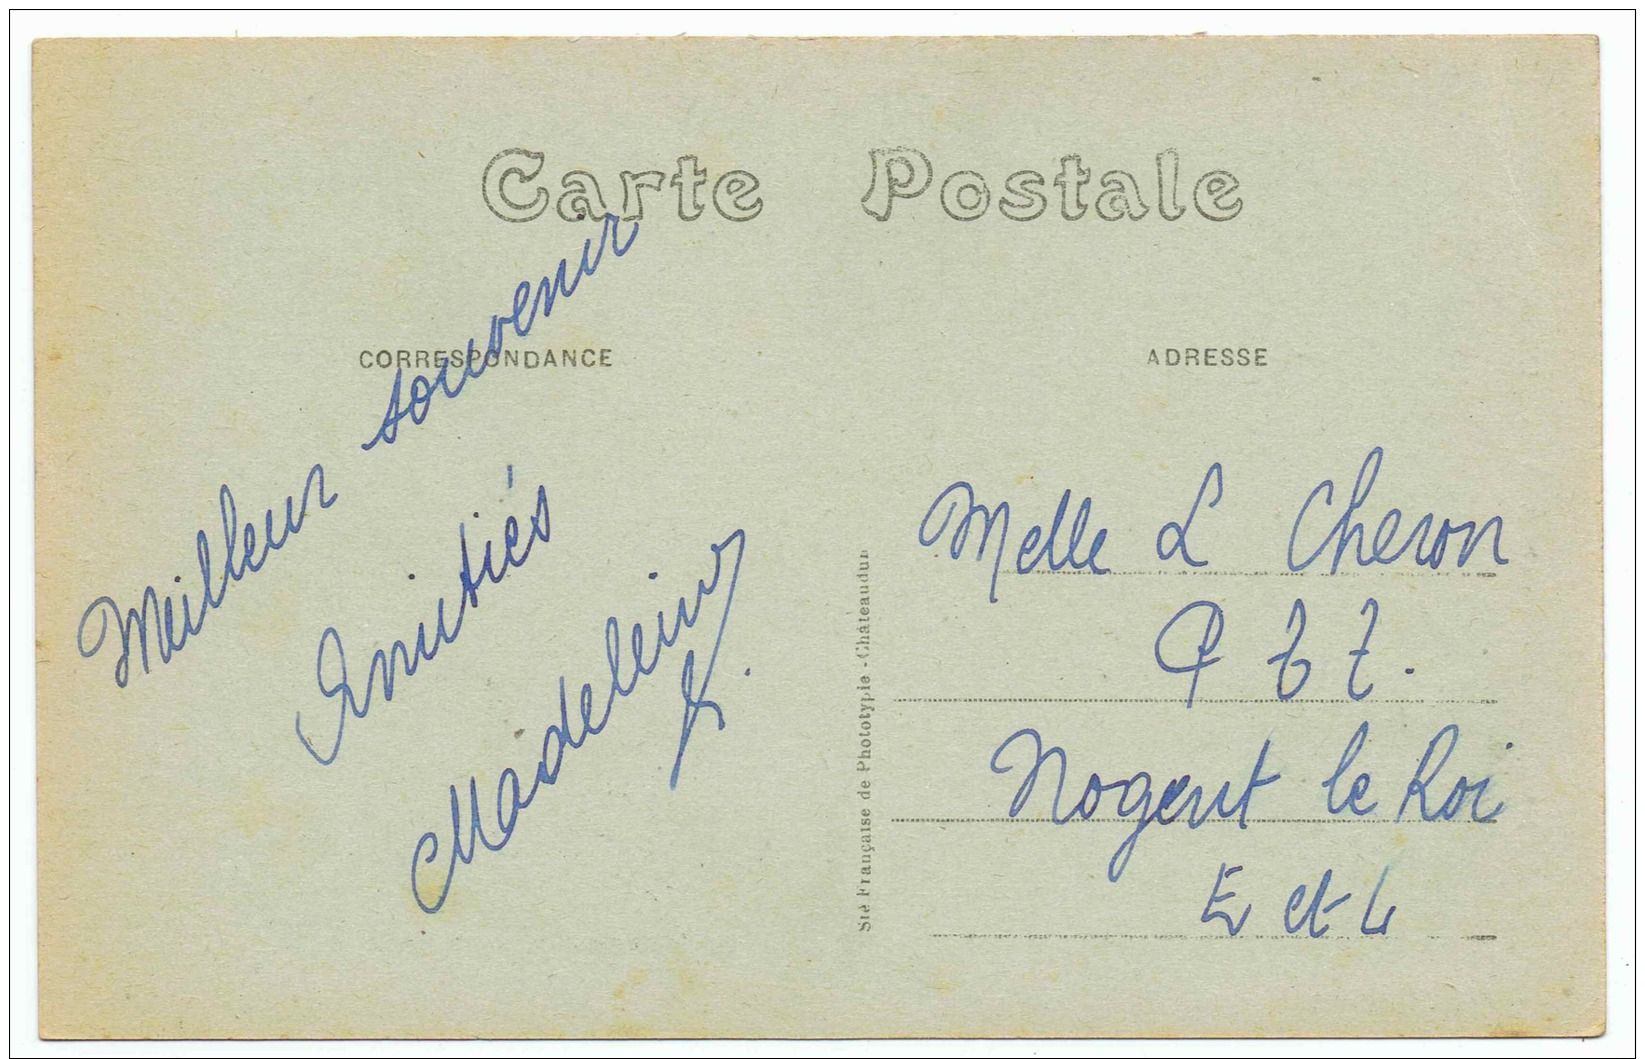 Carte Postale
CORRESPONDANCE
Meilleur souvenir
Amitiés
Madeleine
Sté Française de Phototypie - Châteaudun
ADRESSE
Melle L Cheron
P T T.
Nogent le Roi
E et L